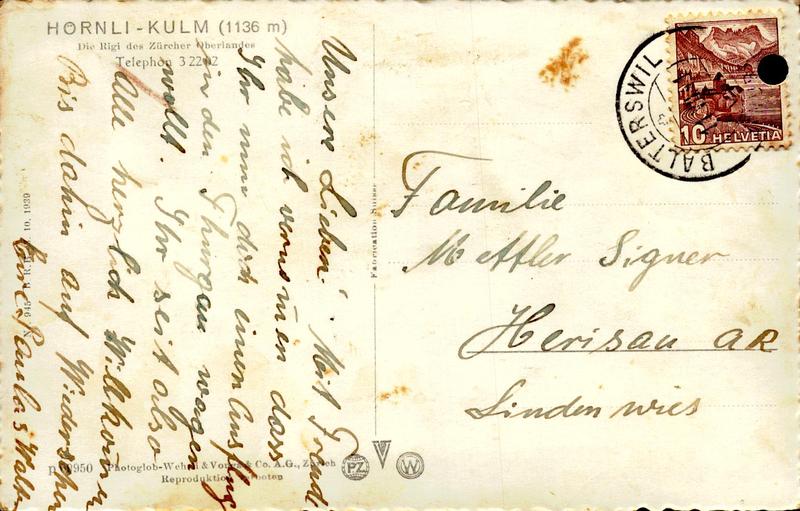 HÖRNLI-KULM (1136 m)
Die Rigi des Zürcher Oberlandes
Telephon 3 22 02
Unsere Lieben! Mit Freud
habe ich vernomen dass
Ihr nun doch einen Ausflug
in den Thurgau wagen
wollt. Ihr seit also
Alle herzlich Willkommen
Bis dahin auf Wiedersehen
Eure Paula & Walter
10. 1939
Fabrication Suisse
p 60950 Photoglob-Wehrli & Vouga & Co. A.G., Zürich
Reproduktion verboten
PZ
V
W
BALTERSWIL
10 HELVETIA
Familie
Mettler Signer
Herisau AR
Lindenwies